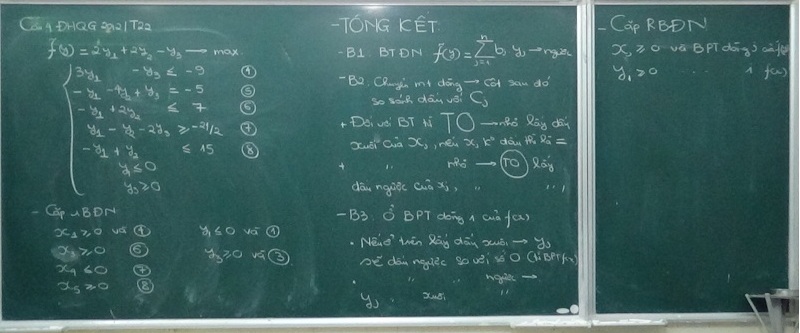 Câu 4 ĐHQG 2012/T22
f̃(y) = 2y₁ + 2y₂ - y₃ → max
3y₁ - y₃ ≤ -9 ④
-y₁ - 4y₂ + y₃ = -5 ⑤
-y₁ + 2y₂ ≤ 7 ⑥
y₁ - y₂ - 2y₃ ≥ -21/2 ⑦
-y₁ + y₂ ≤ 15 ⑧
y₁ ≤ 0
y₃ ≥ 0
- Cặp RBĐN
x₁ ≥ 0 và ④ y₁ ≤ 0 và ①
x₃ ≥ 0 ⑥ y₃ ≥ 0 và ③
x₄ ≤ 0 ⑦
x₅ ≥ 0 ⑧
- TỔNG KẾT
- B1. BTĐN f̃(y) = Σ bⱼ yⱼ → ngược
- B2. Chuyển mt dòng → cột sau đó
so sánh dấu với Cⱼ
+ Đối với BT tì TO → nhỏ lấy dấu
xuôi của xⱼ, nếu xⱼ k° dấu thì là =
+ " nhỏ → TO lấy
dấu ngược của xⱼ, " "
- B3. Ở BPT dòng 1 của f(x)
• Nếu ở trên lấy dấu xuôi → yⱼ
sẽ dấu ngược so với số 0 (tì BPT f(x))
• " " ngược →
yⱼ " xuôi "
- Cặp RBĐN
xⱼ ≥ 0 và BPT dòng j của
y₁ ≥ 0 1 f(x)